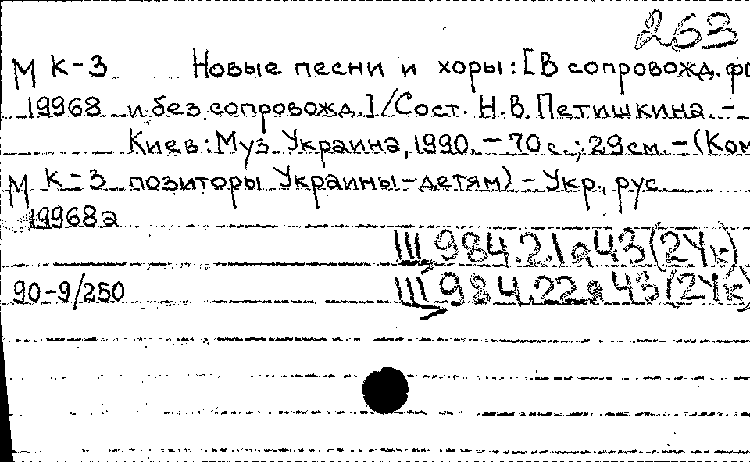 263
М К-3 Новые песни и хоры: [В сопровожд. фо
19968 и без сопровожд.] / Сост. Н.В. Петишкина. -
Киев: Муз. Украина, 1990. - 70 с.; 29 см. - (Ком
М К-3 позиторы Украины - детям) - Укр., рус.
19968а
III 984.21я43(2Ук)
90-9/250 III 984.22я43(2Ук)